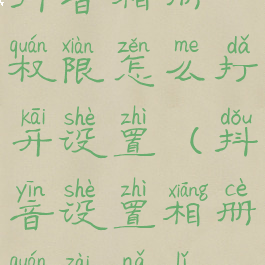 quán xiàn zěn me dǎ
权限怎么打
kāi shè zhì dǒu
开设置（抖
yīn shè zhì xiāng cè
音设置相册
quán zài nǎ lǐ